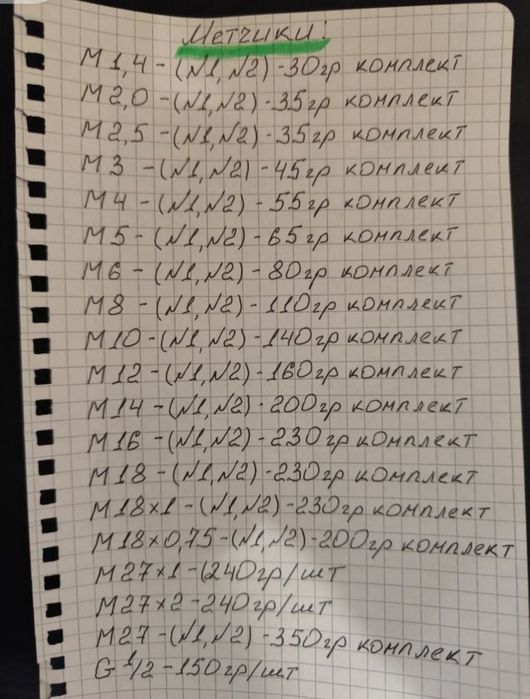 Метчики:
М1,4-(N1,N2)-30гр комплект
М2,0-(N1,N2)-35гр комплект
М2,5-(N1,N2)-35гр комплект
М3 -(N1,N2)-45гр комплект
М4 -(N1,N2)-55гр комплект
М5 -(N1,N2)-65гр комплект
М6 -(N1,N2)-80гр комплект
М8 -(N1,N2)-110гр комплект
М10-(N1,N2)-140гр комплект
М12-(N1,N2)-160гр комплект
М14-(N1,N2)-200гр комплект
М16-(N1,N2)-230гр комплект
М18-(N1,N2)-230гр комплект
М18×1-(N1,N2)-230гр комплект
М18×0,75-(N1,N2)-200гр комплект
М27×1-(240гр/шт
М27×2-240гр/шт
М27-(N1,N2)-350гр комплект
G 1/2-150гр/шт